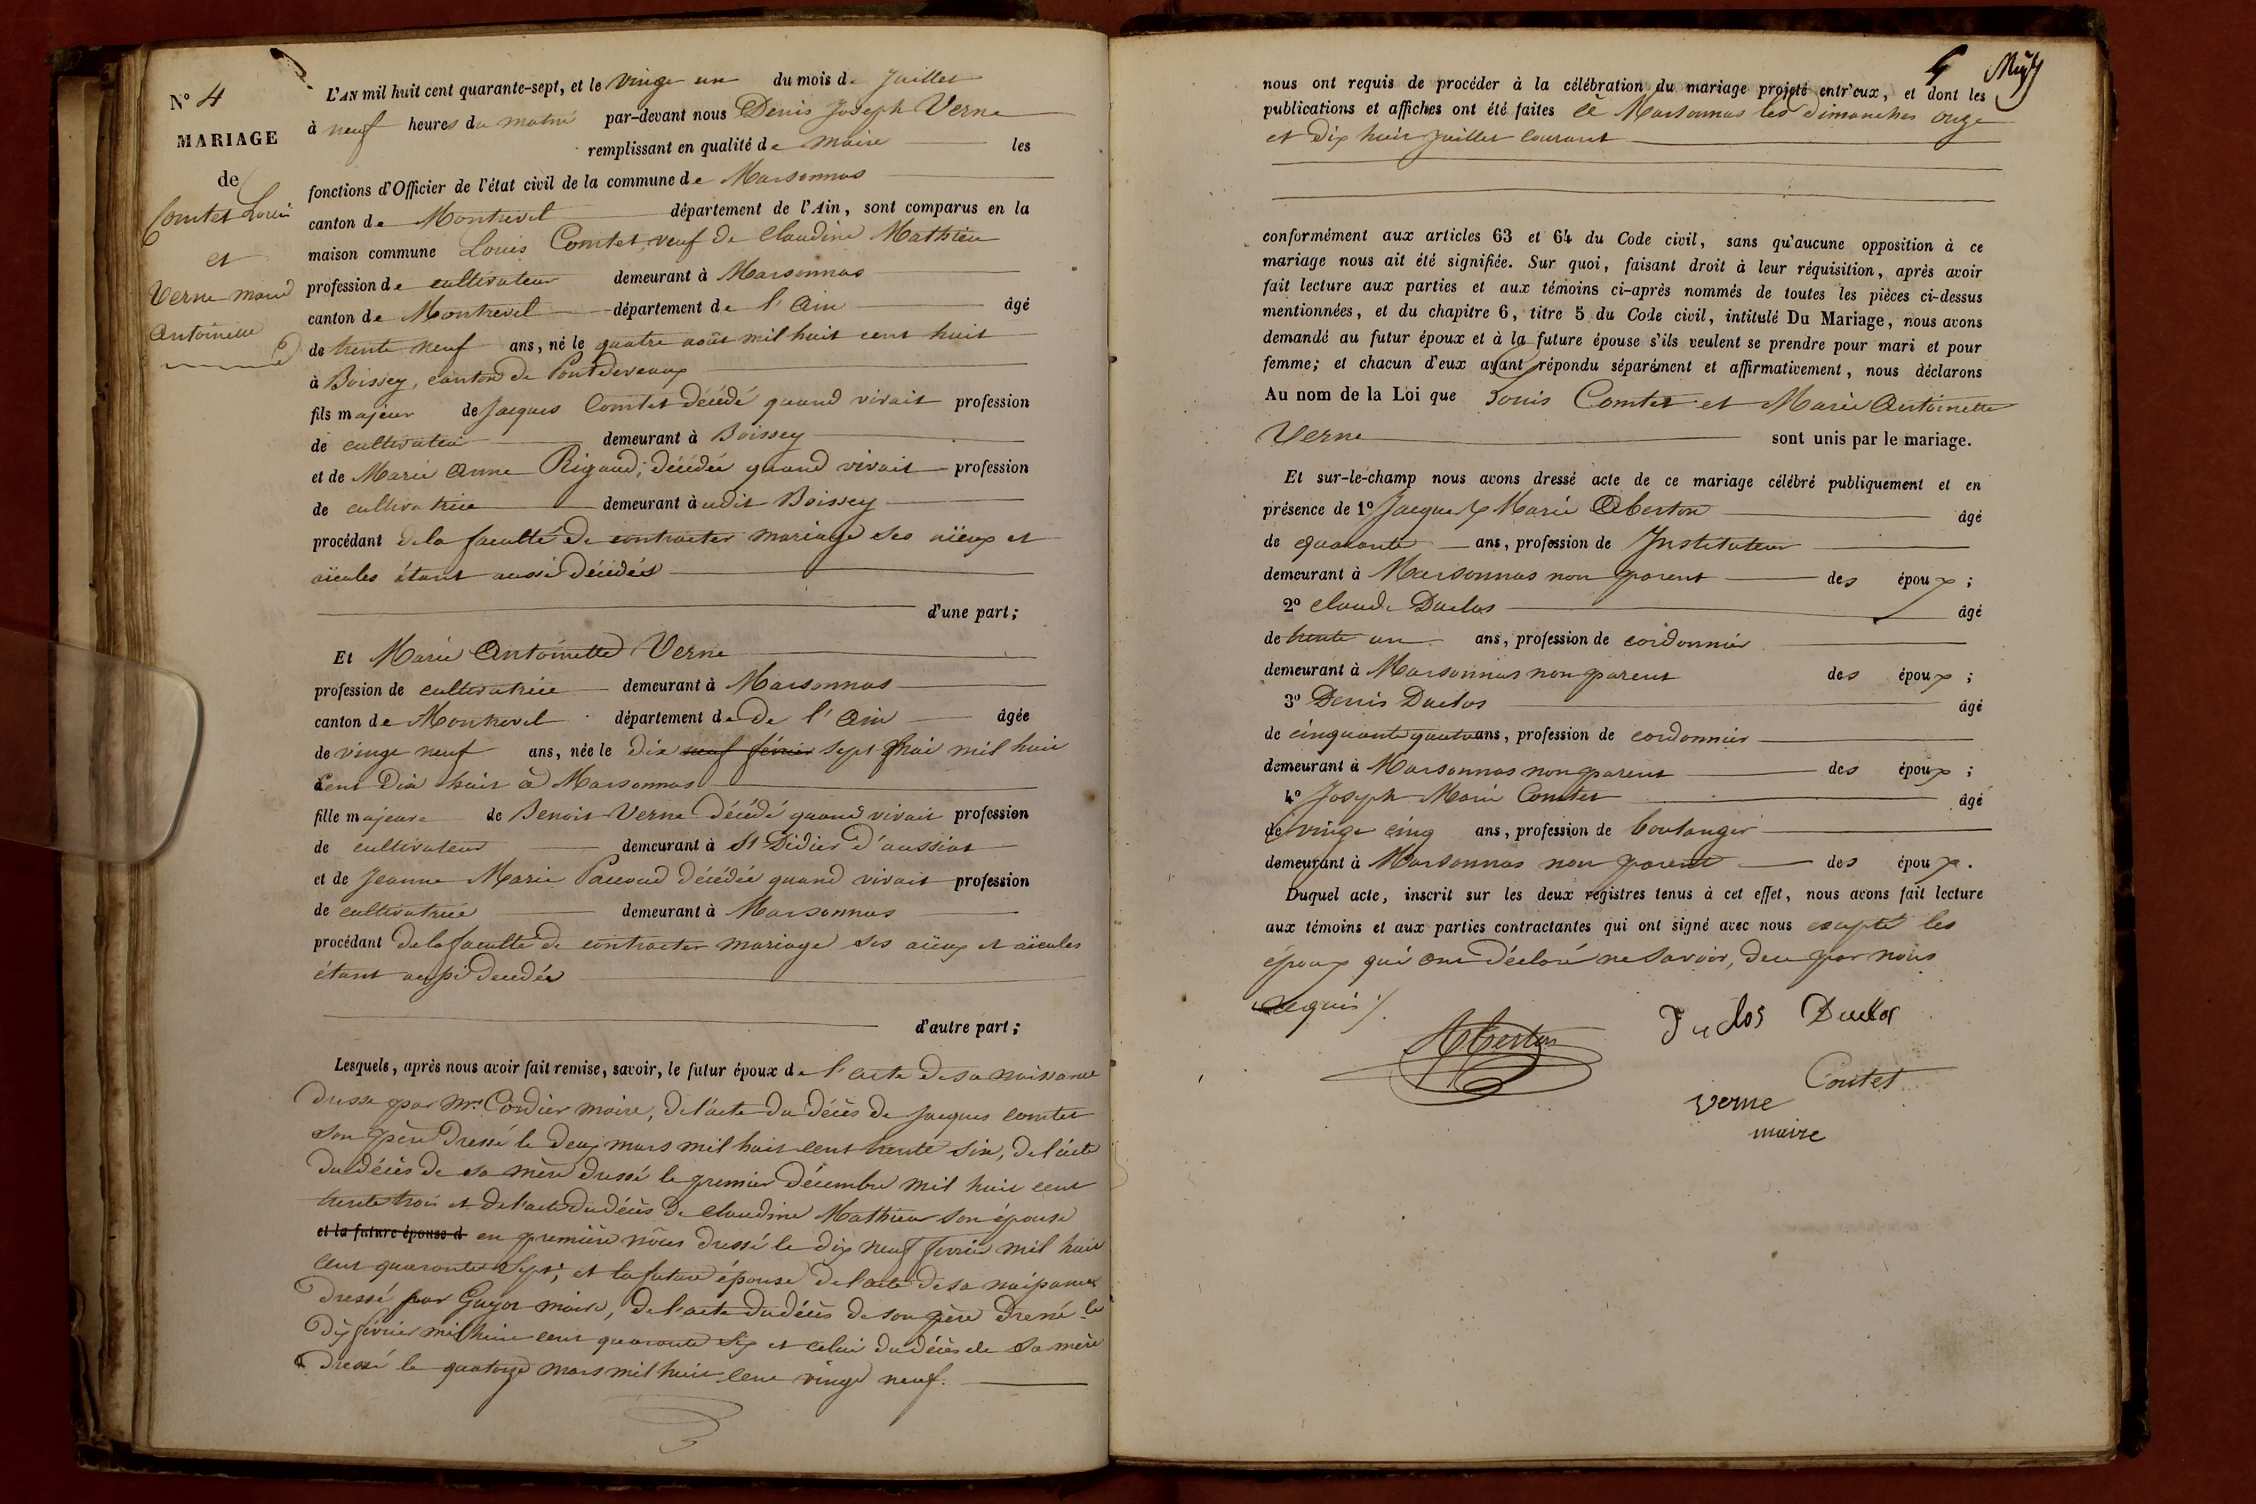 N° 4
MARIAGE
de
Comtet Louis
et
Verne marie
antoinette
L'AN mil huit cent quarante-sept, et le vingt un du mois de Juillet
à neuf heures du matin par-devant nous Denis Joseph Verne
remplissant en qualité de maire les
fonctions d'Officier de l'état civil de la commune de Marsonnas
canton de Montrevel département de l'Ain, sont comparus en la
maison commune Louis Comtet, veuf de Claudine Mathieu
profession de cultivateur demeurant à Marsonnas
canton de Montrevel département de l'Ain âgé
de trente neuf ans, né le quatre août mil huit cent huit
à Boissey, canton de Pontdevaux
fils majeur de Jacques Comtet décédé quand vivait profession
de cultivateur demeurant à Boissey
et de Marie Anne Rigaud, décédée quand vivait profession
de cultivatrice demeurant à udit Boissey
procédant de la faculté de contracter mariage ses aïeux et
aïeules étant aussi décédés
d'une part;
Et Marie Antoinette Verne
profession de cultivatrice demeurant à Marsonnas
canton de Montrevel département de de l'Ain âgée
de vingt neuf ans, née le dix neuf février sept mai mil huit
cent dix huit à Marsonnas
fille majeure de Benoit Verne décédé quand vivait profession
de cultivateur demeurant à St Didier d'aussiat
et de Jeanne Marie Pauvoud décédée quand vivait profession
de cultivatrice demeurant à Marsonnas
procédant de la faculté de contracter mariage ses aïeux et aïeules
étant aussi décédés
d'autre part;
Lesquels, après nous avoir fait remise, savoir, le futur époux de l'acte de sa naissance
dressé par Mr Cordier maire, de l'acte du décès de Jacques comtet
son père dressé le deux mars mil huit cent trente six, de l'acte
du décès de sa mère dressé le premier décembre mil huit cent
trente trois et de l'acte du décès de claudine Mathieu son épouse
et la future épouse d en première nôces dressé le dix neuf février mil huit
cent quarante sept; et la future épouse de l'acte de sa naissance
dressé par Guyot maire, de l'acte du décès de son père dressé le
dix février mil huit cent quarante six et celui du décès de sa mère
dressé le quatorze mars mil huit cent vingt neuf.
nous ont requis de procéder à la célébration du mariage projeté entr'eux, et dont les
publications et affiches ont été faites à Marsonnas les dimanches onze
et dix huit juillet courant
conformément aux articles 63 et 64 du Code civil, sans qu'aucune opposition à ce
mariage nous ait été signifiée. Sur quoi, faisant droit à leur réquisition, après avoir
fait lecture aux parties et aux témoins ci-après nommés de toutes les pièces ci-dessus
mentionnées, et du chapitre 6, titre 5 du Code civil, intitulé Du Mariage, nous avons
demandé au futur époux et à la future épouse s'ils veulent se prendre pour mari et pour
femme; et chacun d'eux ayant répondu séparément et affirmativement, nous déclarons
Au nom de la Loi que Louis Comtet et Marie Antoinette
Verne sont unis par le mariage.
Et sur-le-champ nous avons dressé acte de ce mariage célébré publiquement et en
présence de 1° Jacques Marie Aberton âgé
de quarante ans, profession de Instituteur
demeurant à Marsonnas non parent des époux;
2° claude Duclos âgé
de trente un ans, profession de cordonnier
demeurant à Marsonnas non parent des époux;
3° Denis Duclos âgé
de cinquante quatre ans, profession de cordonnier
demeurant à Marsonnas non parent des époux;
4° Joseph Marie Comtet âgé
de vingt cinq ans, profession de boulanger
demeurant à Marsonnas non parent des époux.
Duquel acte, inscrit sur les deux registres tenus à cet effet, nous avons fait lecture
aux témoins et aux parties contractantes qui ont signé avec nous excepté les
époux qui ont déclaré ne savoir, de ce par nous
requis
Aberton
Duclos Duclos
Contet
verne
maire